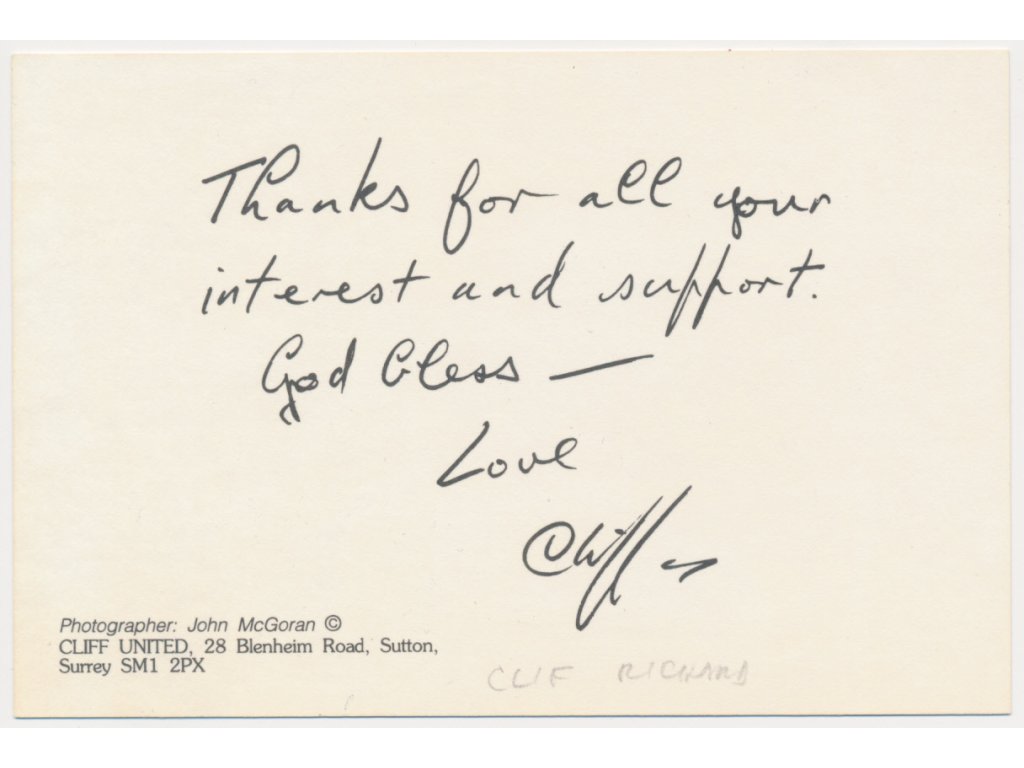 Thanks for all your
interest and support.
God bless —
Love
Cliff
Photographer: John McGoran ©
CLIFF UNITED, 28 Blenheim Road, Sutton,
Surrey SM1 2PX
CLIF RICHARD